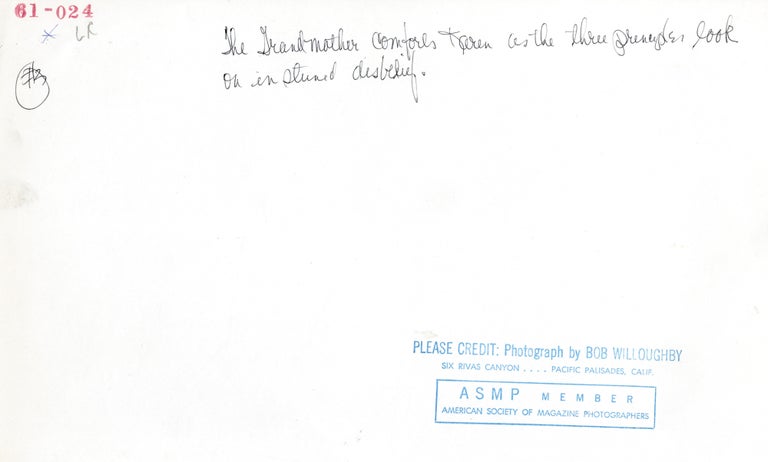 61-024
LR
#3
The Grandmother comforts Karen as the three principles look
on in stuned disbelief.
PLEASE CREDIT: Photograph by BOB WILLOUGHBY
SIX RIVAS CANYON .... PACIFIC PALISADES, CALIF.
ASMP MEMBER
AMERICAN SOCIETY OF MAGAZINE PHOTOGRAPHERS